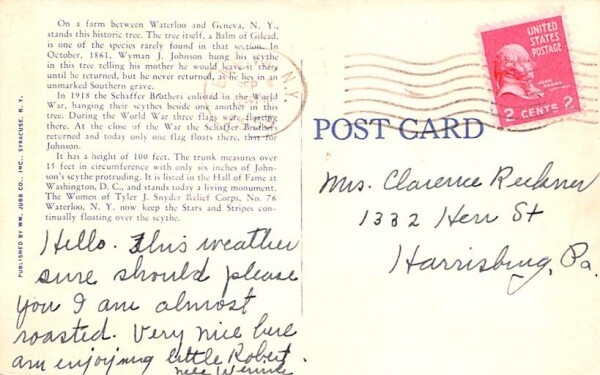 On a farm between Waterloo and Geneva, N. Y.,
stands this historic tree. The tree itself, a Balm of Gilead,
is one of the species rarely found in that section. In
October, 1861, Wyman J. Johnson hung his scythe
in this tree telling his mother he would leave it there
until he returned, but he never returned, as he lies in an
unmarked Southern grave.
In 1918 the Schaffer Brothers enlisted in the World
War, hanging their scythes beside one another in this
tree. During the World War three flags were floating
there. At the close of the War the Schaffer Brothers
returned and today only one flag floats there, that for
Johnson.
It has a height of 100 feet. The trunk measures over
15 feet in circumference with only six inches of John-
son's scythe protruding. It is listed in the Hall of Fame at
Washington, D. C., and stands today a living monument.
The Women of Tyler J. Snyder Relief Corps, No. 76
Waterloo, N. Y. now keep the Stars and Stripes con-
tinually floating over the scythe.
PUBLISHED BY WM. JUBB CO., INC., SYRACUSE, N. Y.
Hello. This weather
sure should please
you I am almost
roasted. Very nice here
am enjoying little Robert.
N.Y.
UNITED
STATES
POSTAGE
2 CENTS 2
POST CARD
Mrs. Clarence Reckner
1332 Herr St
Harrisburg, Pa.